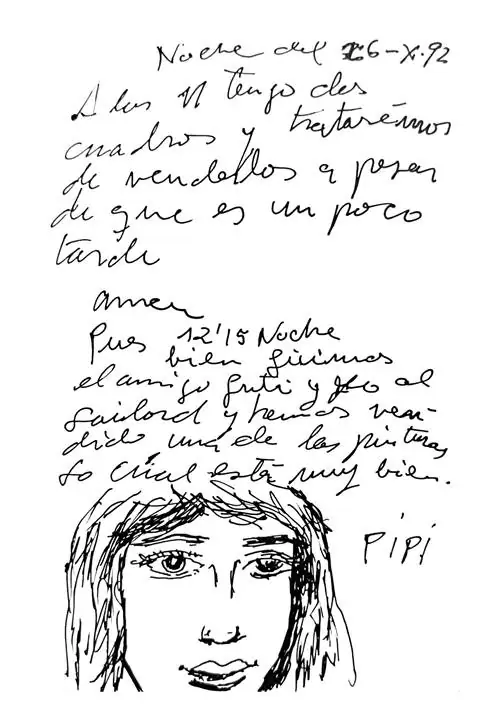 Noche del 26-X-92
A las 11 tengo dos
cuadros y trataremos
de vendellos a pesar
de que es un poco
tarde
amen
Pues 12'15 Noche
bien fuimos
el amigo Guti y yo al
Gailord y hemos ven-
dido una de las pinturas
Lo cual está muy bien.
PiPi